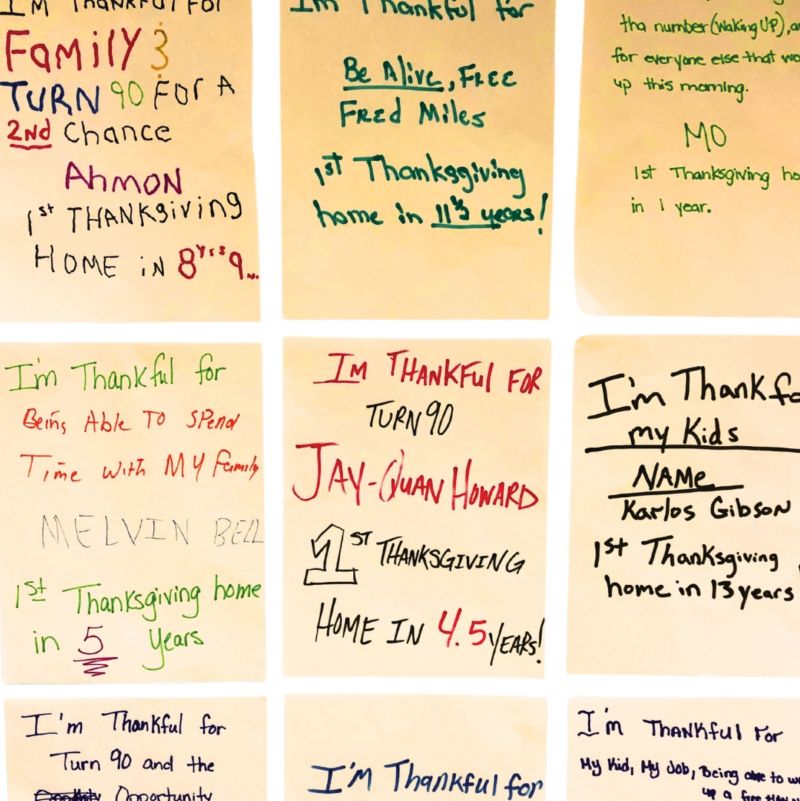 I'M THANKFUL FOR
FAMILY &
TURN 90 FOR A
2nd Chance
AhMON
1st THANKSgiving
HOME iN 8yrs 9...
I'm Thankful for
Be Alive, FREE
FREd Miles
1st Thanksgiving
home in 11½ years!
tha number (Waking UP), an
for everyone else that wo
up this morning.
MO
1st Thanksgiving ho
in 1 year.
I'm Thankful for
Being Able TO SPend
Time with MY family
MELVIN BELL
1st Thanksgiving home
in 5 years
IM THANKFUL FOR
TURN 90
JAY-QUAN HOWARD
1ST THANKSGIVING
HOME IN 4.5 YEARS!
I'm Thankfo
my Kids
NAMe
Karlos Gibson
1st Thanksgiving
home in 13 years
I'm Thankful for
Turn 90 and the
Opportunity
I'M Thankful for
I'm THANKFUL FOR
My Kid, My Job, Being able to w
up a free